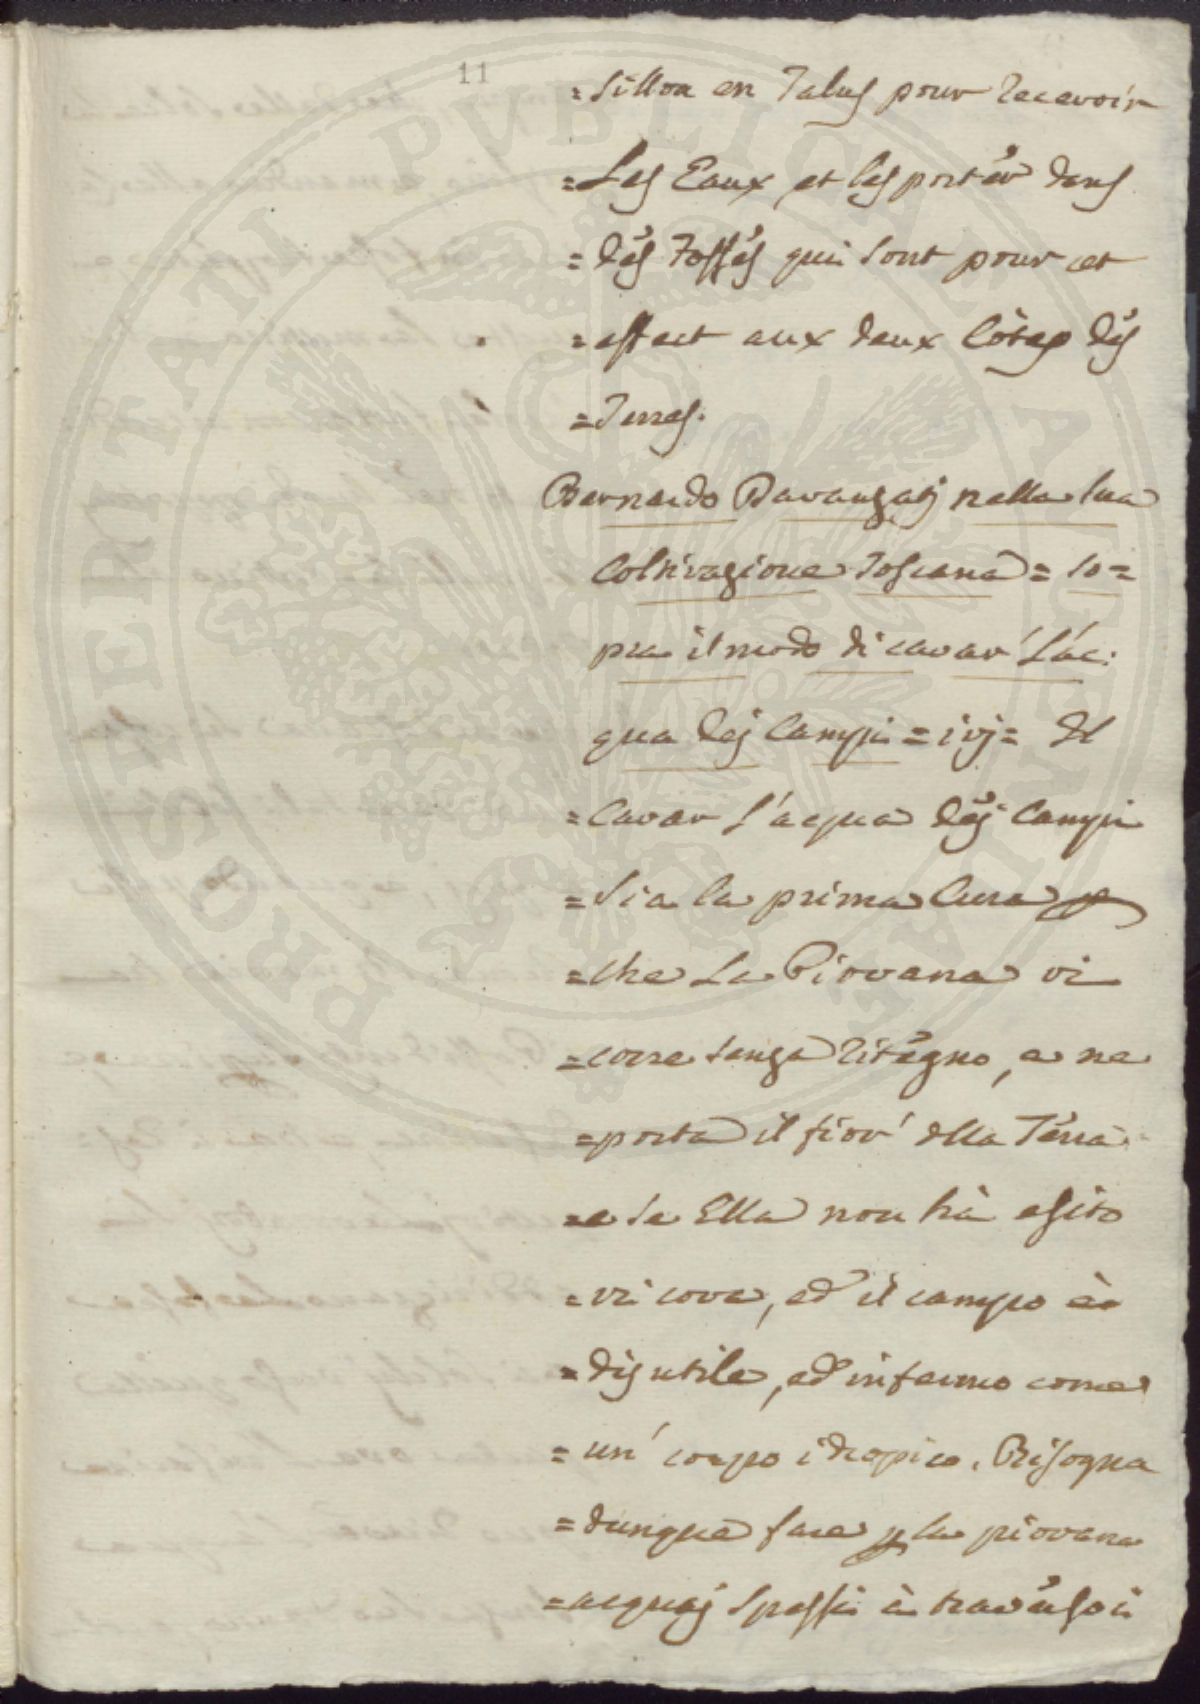 11
=sillon en Talus pour recevoir
=Les Eaux et les portér dans
=dés Fossés qui sont pour cet
=effect aux deux Côtes dés
=Terres.
Bernardo Davanzatj nella sua
Coltivazione Toscana = so=
pra il modo di cavar' L'ac:
qua dej Campi = ivj = Il
=Cavar L'acqua déj Campi
=Sia la prima Cura p
=che La Piovana vi
=corre senza ritégno, e ne
=porta il fior' della Térra
=e se Ella non hà esito
=vi cova, ed il campo è
=disutile, ed infermo come
=un' corpo idropico. Bisogna
=dunque fare p la piovana
=acquaj spessi à travérso i
PROSPERITATI PVBLICAE AVGENDAE